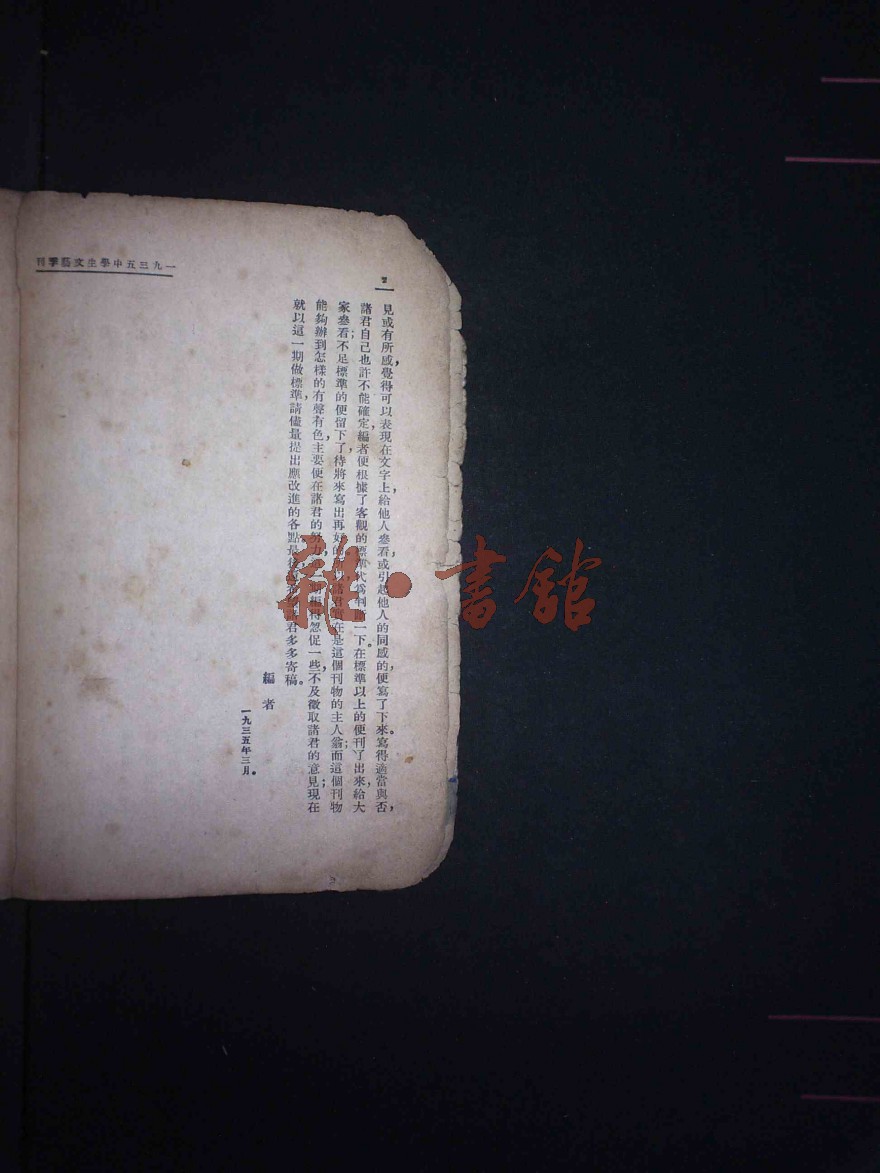 一九三五中學生文藝季刊
2
見或有所感,覺得可以表現在文字上,給他人參看,或引起他人的同感的,便寫了下來。寫得適當與否,
諸君自己也許不能確定,編者便根據了客觀的標準代爲判斷一下。在標準以上的便刊了出來,給大
家參看;不足標準的便留下了,待將來寫出再好的諸君實在是這個刊物的主人翁;而這個刊物
能夠辦到怎樣的有聲有色,主要便在諸君的努力期編得怱促一些,不及徵取諸君的意見;現在
就以這一期做標準,請儘量提出應改進的各點。最後諸君多多寄稿。
編者
一九三五年三月。
雜·書館